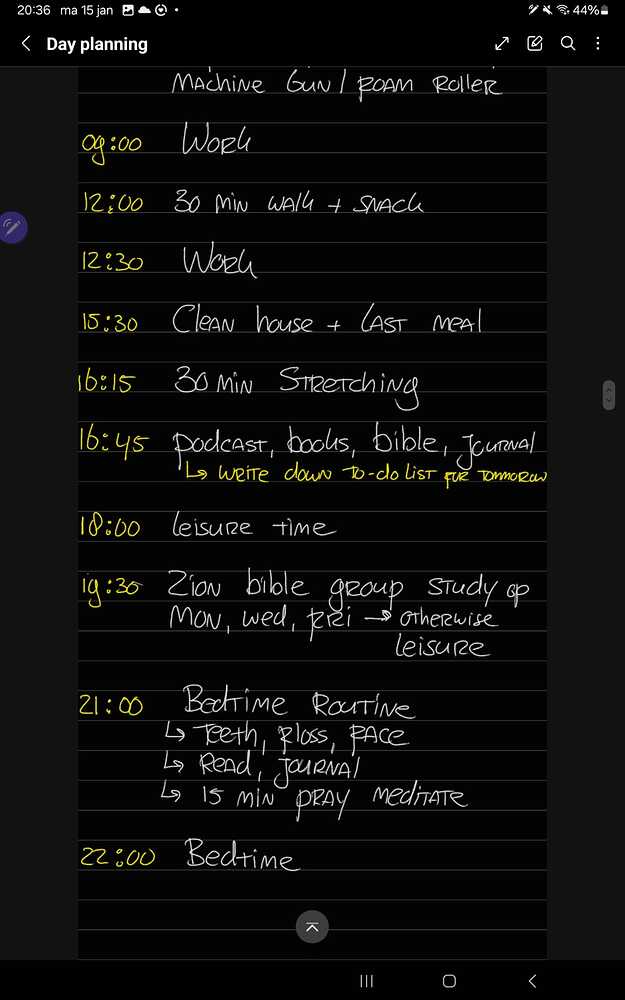 20:36 ma 15 jan 44%
Day planning
MACHINE GUN / FOAM ROLLER
09:00 WORK
12:00 30 MIN WALK + SNACK
12:30 WORK
15:30 CLEAN house + LAST MEAL
16:15 30 MIN STRETChING
16:45 podcAST, books, bible, JOURNAL
↳ WRITE down TO-do LIST FOR TOMMOROW
18:00 leisure time
19:30 Zion bible group study op
MON, wed, FRI → OTHERWISE
leisure
21:00 BEDTIME ROUTINE
↳ TEETH, FLOSS, FACE
↳ READ, JOURNAL
↳ 15 MIN PRAY MEDITATE
22:00 Bedtime